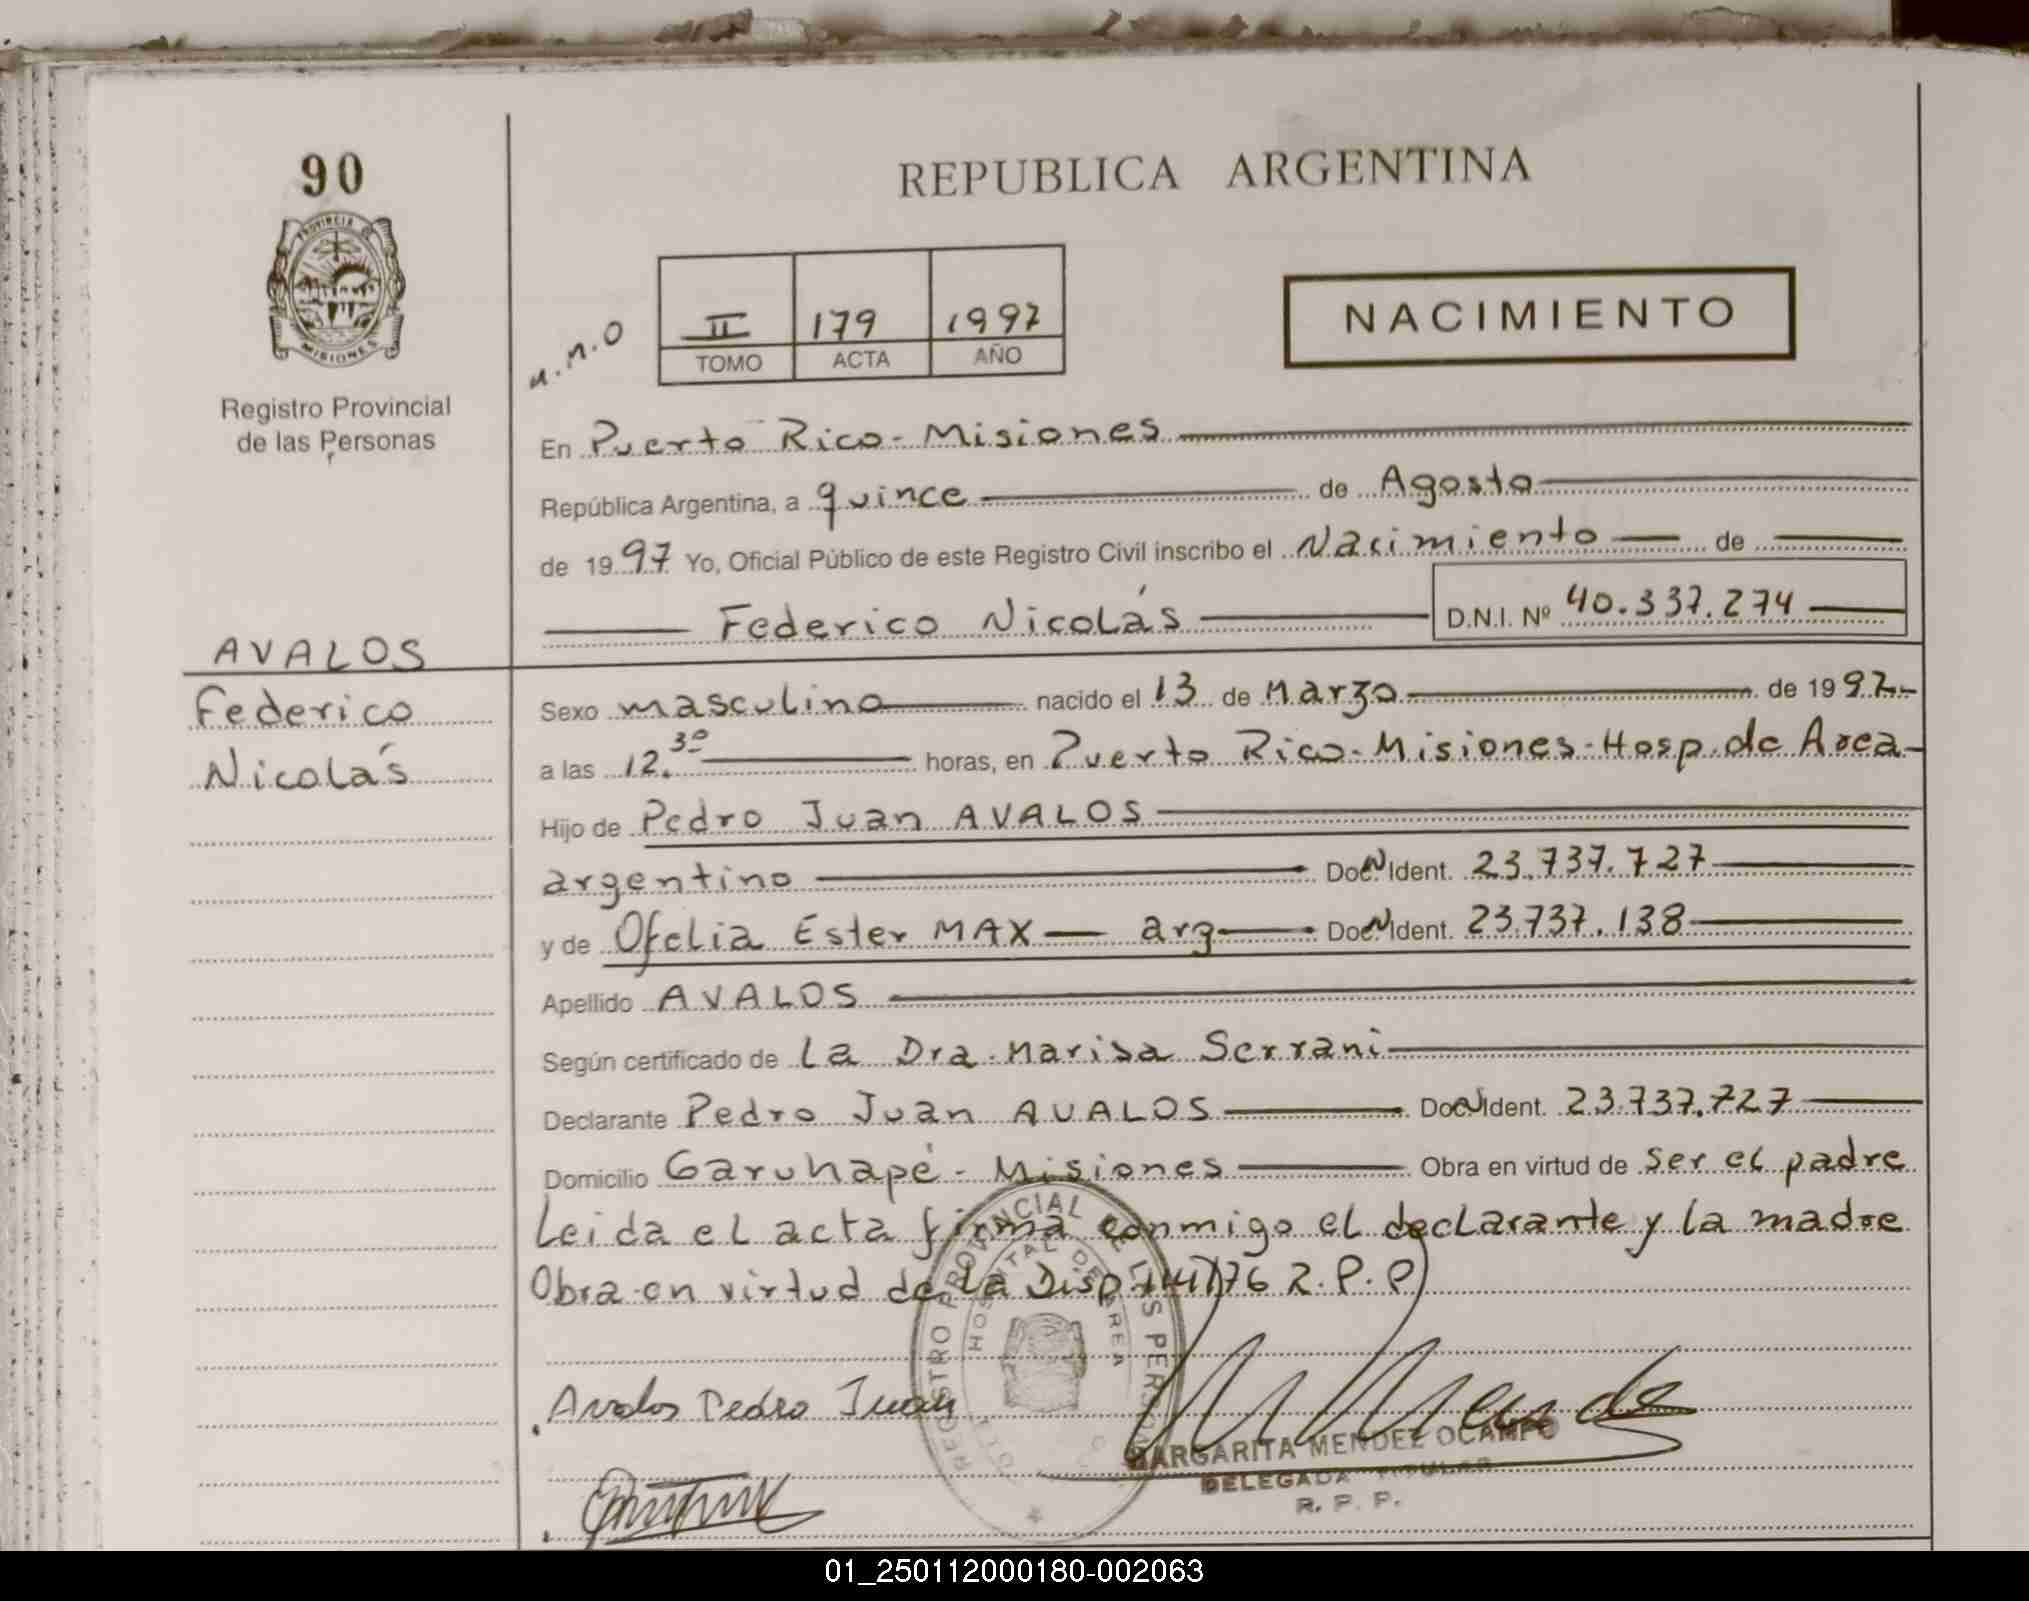 90
PROVINCIA DE
MISIONES
Registro Provincial
de las Personas
REPUBLICA ARGENTINA
n.n.o
II 179 1997
TOMO ACTA AÑO
NACIMIENTO
En Puerto Rico - Misiones
República Argentina, a quince de Agosto
de 1997 Yo, Oficial Público de este Registro Civil inscribo el Nacimiento de
Federico Nicolás D.N.I. Nº 40.337.274
AVALOS
Federico
Nicolás
Sexo masculino nacido el 13 de Marzo de 1997.-
a las 12.30 horas, en Puerto Rico - Misiones - Hosp. de Area -
Hijo de Pedro Juan AVALOS
argentino Doc. N Ident. 23.737.727
y de Ofelia Ester MAX — arg — Doc. N Ident. 23.737.138
Apellido AVALOS
Según certificado de La Dra. Marisa Serrani
Declarante Pedro Juan AVALOS Doc. N Ident. 23.737.727
Domicilio Garuhapé - Misiones Obra en virtud de ser el padre
Leida el acta firma conmigo el declarante y la madre
Obra en virtud de la Disp. 141/76 R.P.P
REGISTRO PROVINCIAL DE LAS PERSONAS
HOSPITAL DE AREA
Avalos Pedro Juan
MARGARITA MENDEZ OCAMPO
DELEGADA TITULAR
R. P. P.
01_250112000180-002063